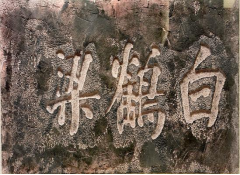 白鶴梁